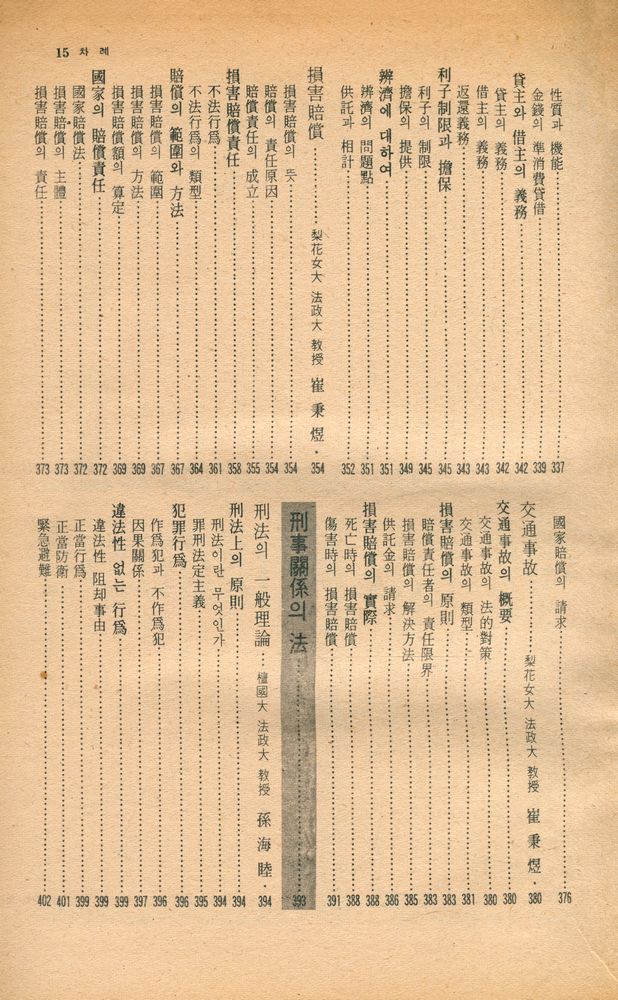 15 차 례
性質과 機能 337
金錢의 準消費貸借 339
貸主와 借主의 義務 342
貸主의 義務 342
借主의 義務 343
返還義務 343
利子制限과 擔保 345
利子의 制限 345
擔保의 提供 349
辨濟에 대하여 351
辨濟의 問題點 351
供託과 相計 352
損害賠償 梨花女大 法政大 教授 崔秉煜 354
損害賠償의 뜻 354
賠償의 責任原因 354
賠償責任의 成立 355
損害賠償責任 358
不法行爲 361
不法行爲의 類型 364
賠償의 範圍와 方法 367
損害賠償의 範圍 367
損害賠償의 方法 369
損害賠償額의 算定 369
國家의 賠償責任 372
國家賠償法 372
損害賠償의 主體 373
損害賠償의 責任 373
國家賠償의 請求 376
交通事故 梨花女大 法政大 教授 崔秉煜 380
交通事故의 概要 380
交通事故의 法的對策 380
交通事故의 類型 381
損害賠償의 原則 383
賠償責任者의 責任限界 383
損害賠償의 解決方法 385
供託金의 請求 386
損害賠償의 實際 388
死亡時의 損害賠償 388
傷害時의 損害賠償 391
刑事關係의 法 393
刑法의 一般理論 檀國大 法政大 教授 孫海睦 394
刑法上의 原則 394
刑法이란 무엇인가 394
罪刑法定主義 395
犯罪行爲 396
作爲犯과 不作爲犯 396
因果關係 397
違法性 없는 行爲 399
違法性 阻却事由 399
正當行爲 399
正當防衛 401
緊急避難 402